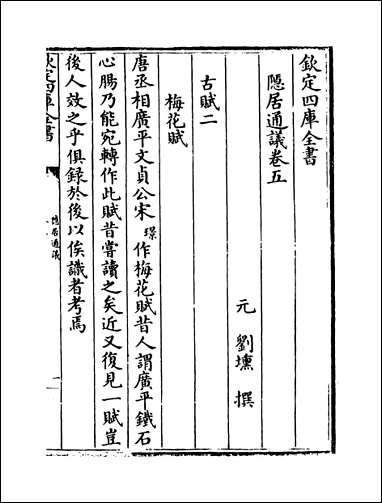 欽定四庫全書
隱居通議卷五
元 劉壎 撰
古賦二
梅花賦
唐丞相廣平文貞公宋璟作梅花賦昔人謂廣平鐵石
心腸乃能宛轉作此賦昔嘗讀之矣近又復見一賦豈
後人效之乎俱録於後以俟識者考焉
欽定四庫全書
隱居通議